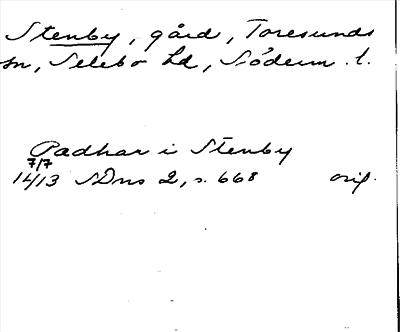 Stenby, gård, Toresunds
sn, Selebo hd, Söderm. l.
Padhar i Stenby
7/7
1413 SDns 2, s. 668 orig.